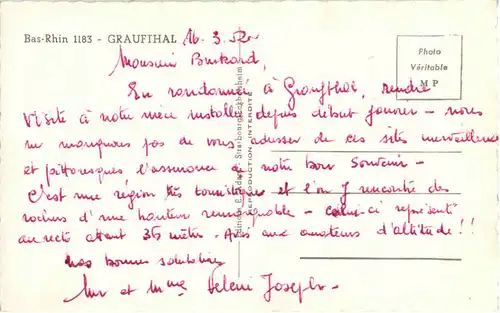 Bas-Rhin 1183 - GRAUFTHAL 16.3.52
Photo
Véritable
M P
Monsieur Burkard,
En randonnée à Graufthal, rendre
visite à notre mère installée depuis début janvier - nous
ne manquons pas de vous adresser de ces sites merveilleux
et pittoresques l'assurance de notre bon souvenir -
C'est une région très touristique et l'on y rencontre des
rochers d'une hauteur remarquable - celui-ci représenté
au recto atteint 36 mètres. Avis aux amateurs d'altitude !!
nos bonnes salutations
Mr et Mme Joseph
REPRODUCTION INTERDITE